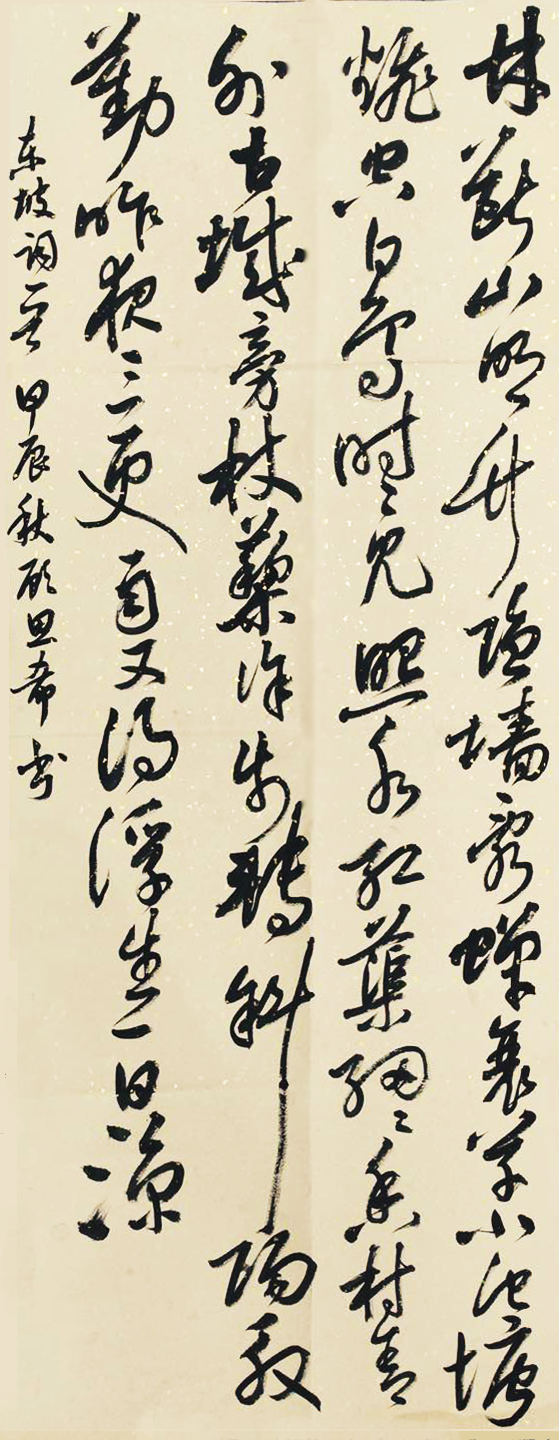 林断山明竹隐墙乱蝉衰草小池塘
翻空白鸟时々见照水红蕖细々香村舍
外古城旁杖藜徐步转斜阳殷
勤昨夜三更雨又得浮生一日凉
东坡词一首 甲辰秋 思希书